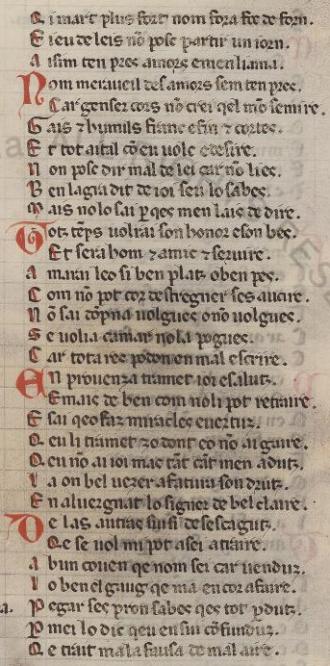 Q i mart plus fort nom fora foc de forn.
E ieu de leis nō posc partir un iorn.
A isim ten pres amors em en liama.
Nom meraueil des amors sem ten pres.
Car genser cors nō crei qel mō se mire.
Gais ⁊ humils franc e fin ⁊ cortes.
E t tot aital cō eu uolc e desire.
N on posc dir mal de lei car nō lies.
B en lagra dit de ioi seu lo sabes.
M ais nolo sai p̱ qes men lais de dire.
Tot tēps uolrai son honor e son bes.
Et serai hom ⁊ amic ⁊ seruire.
A marai leo si ben plat o ben pes.
C om nō pot cor destregner ses aucire.
N ō sai dōpna uolgues o nō uolgues.
S e uolia camar nola pogues.
C ar tota res podon en mal escrire.
En prouenza tramet ioi e salutz.
E mais de ben com noli pot retraire.
E sai qeo faz miracles e uertutz.
Q eu li tramet zo dont eo nō ai gaire.
Q eu nō ai ioi mas tāt cāt men adutz.
l a on bel uezer a fatura son drutz.
E n aluergnat lo signer de bel claire.
De las autras sui si desescagutz.
Qe se uol mi pot a sei atraire.
a b un couen qe nom sei car uendutz.
l o ben el gaug qe ma en cor a faire.
P egar ses pron sabes qes tot p̱dutz.
P mei lo dic qeu en sui cōfundutz.
Q e trait ma la falsa de mal aire.